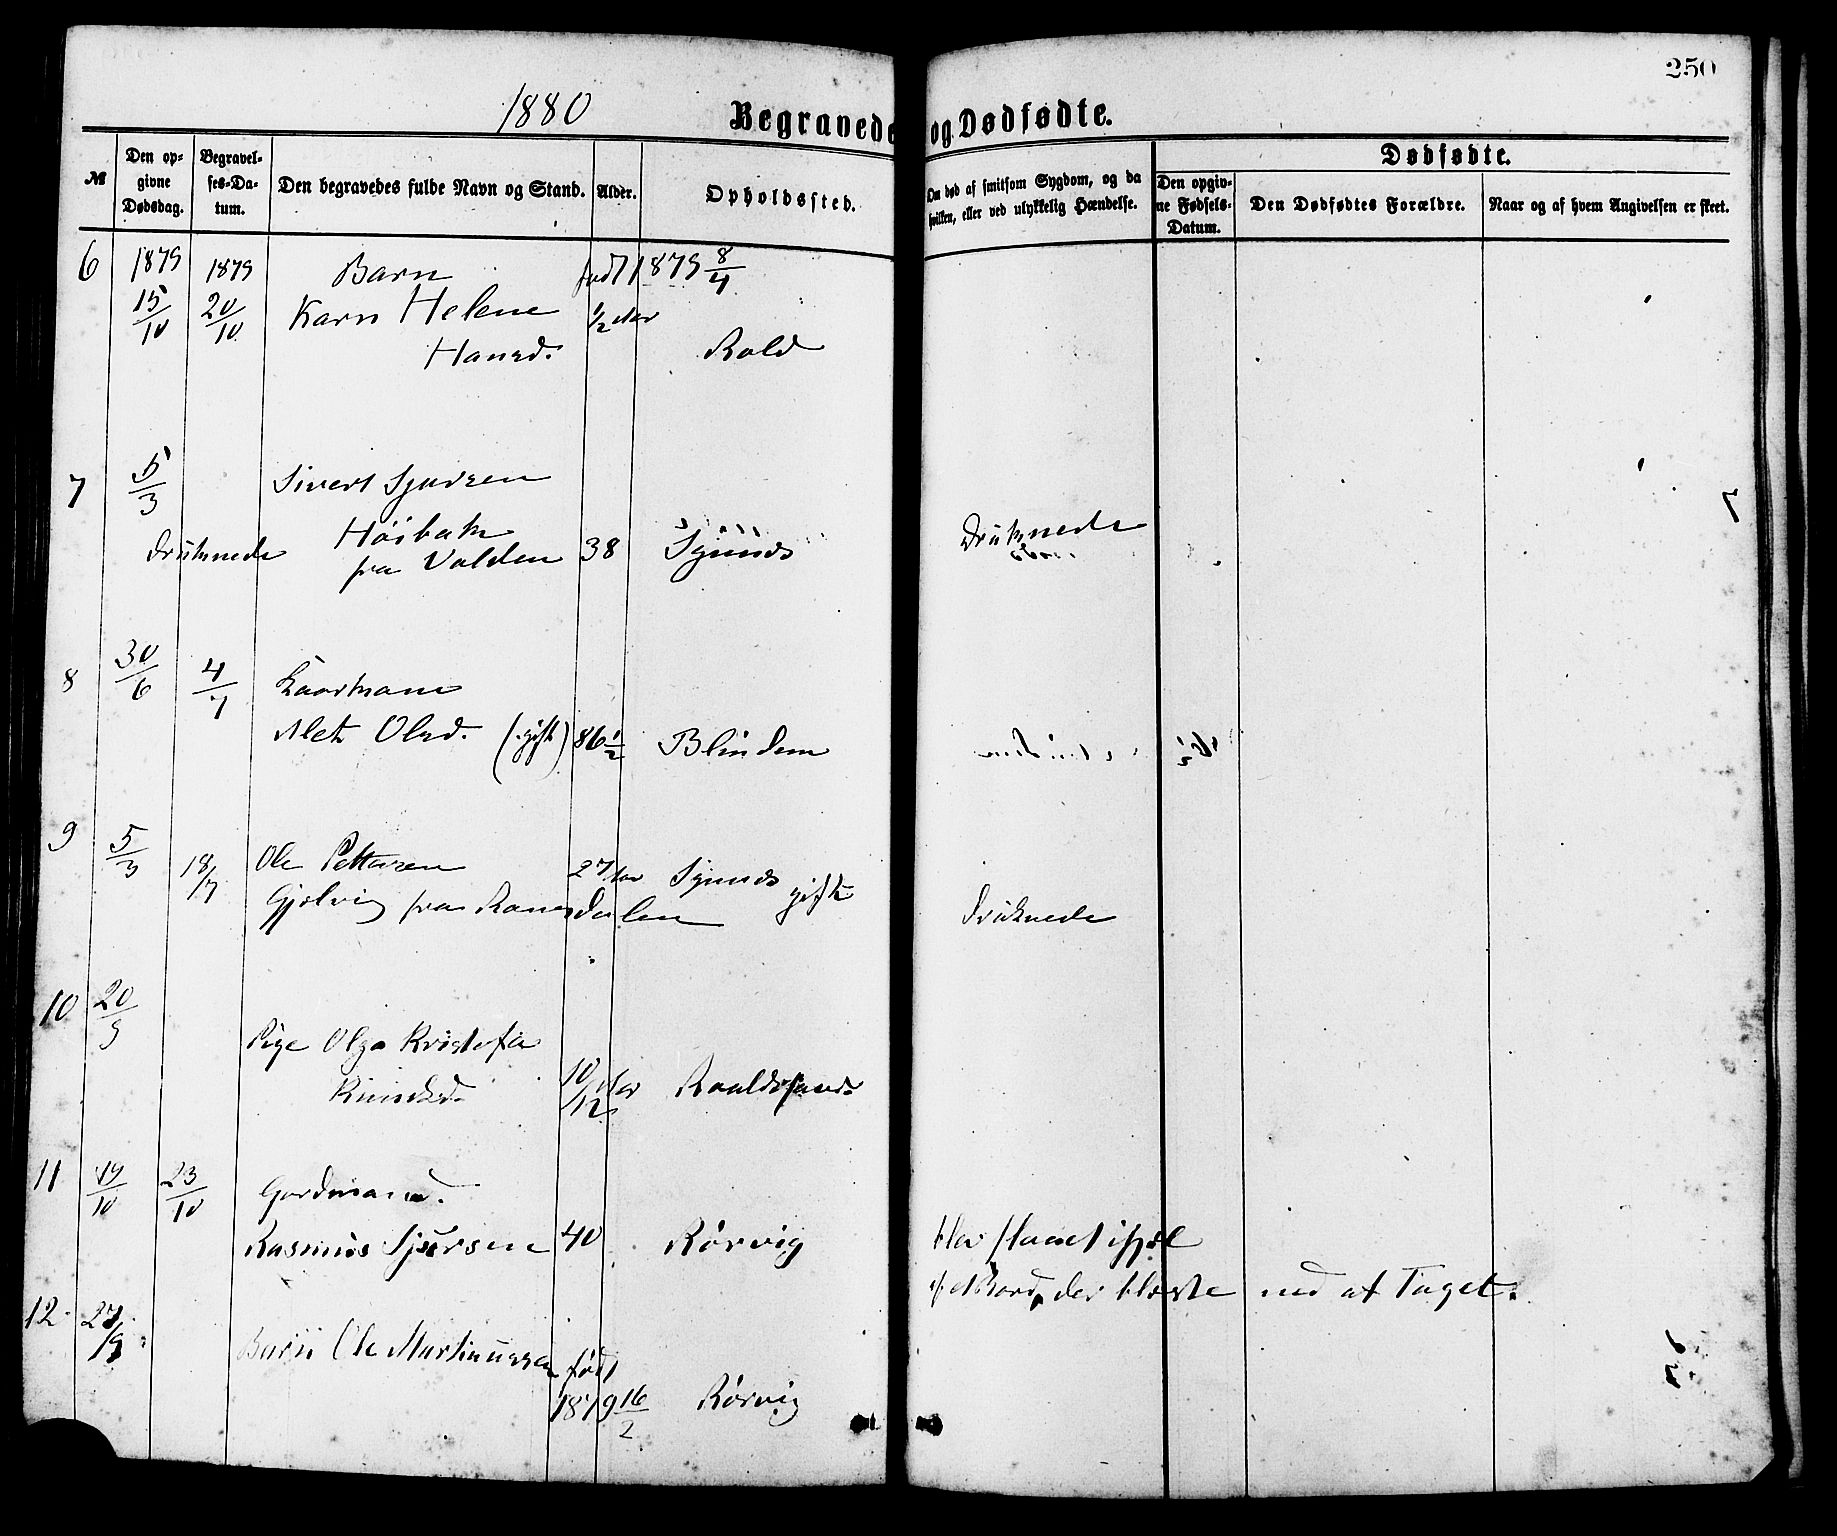 250
1880
Begravede og Dødfødte.
№
Den opgivne Dødsdag.
Begravelses-Datum.
Den begravedes fulde Navn og Stand.
Alder.
Opholdssted.
Om død af smitsom Sygdom, og da hvilken, eller ved ulykkelig Hændelse.
Dødfødte.
Den opgivne Fødsels-Datum.
Den Dødfødtes Forældre.
Naar og af hvem Angivelsen er skeet.
6 1879 1879 Barn født 1879 8/4
15/10 20/10 Karn Helene 1/2 Aar
Hansd. Rald
7 5/3 Sivert Sjursen
druknede Høibak 38 Synnes Druknede
fra Valden
8 30/6 4/7 Kaarkane
Alet Olsd. (gift) 86 1/2 Blindem
9 5/3 18/7 Ole Pettersen 27 Aar Synnes gift
Gjelvig fra Ramsdalen druknede
10 20/9
Pige Olga Kristofa
10/12 Aar Roaldssand
11 19/10 23/10 Gardmand.
Rasmus Sjursen 40 Rørvig blev slaaet ihjel
af et Bord, der blæste ned af Taget.
12 27/9
Barn Ole Martinussen født
1879 16/2 Rørvig